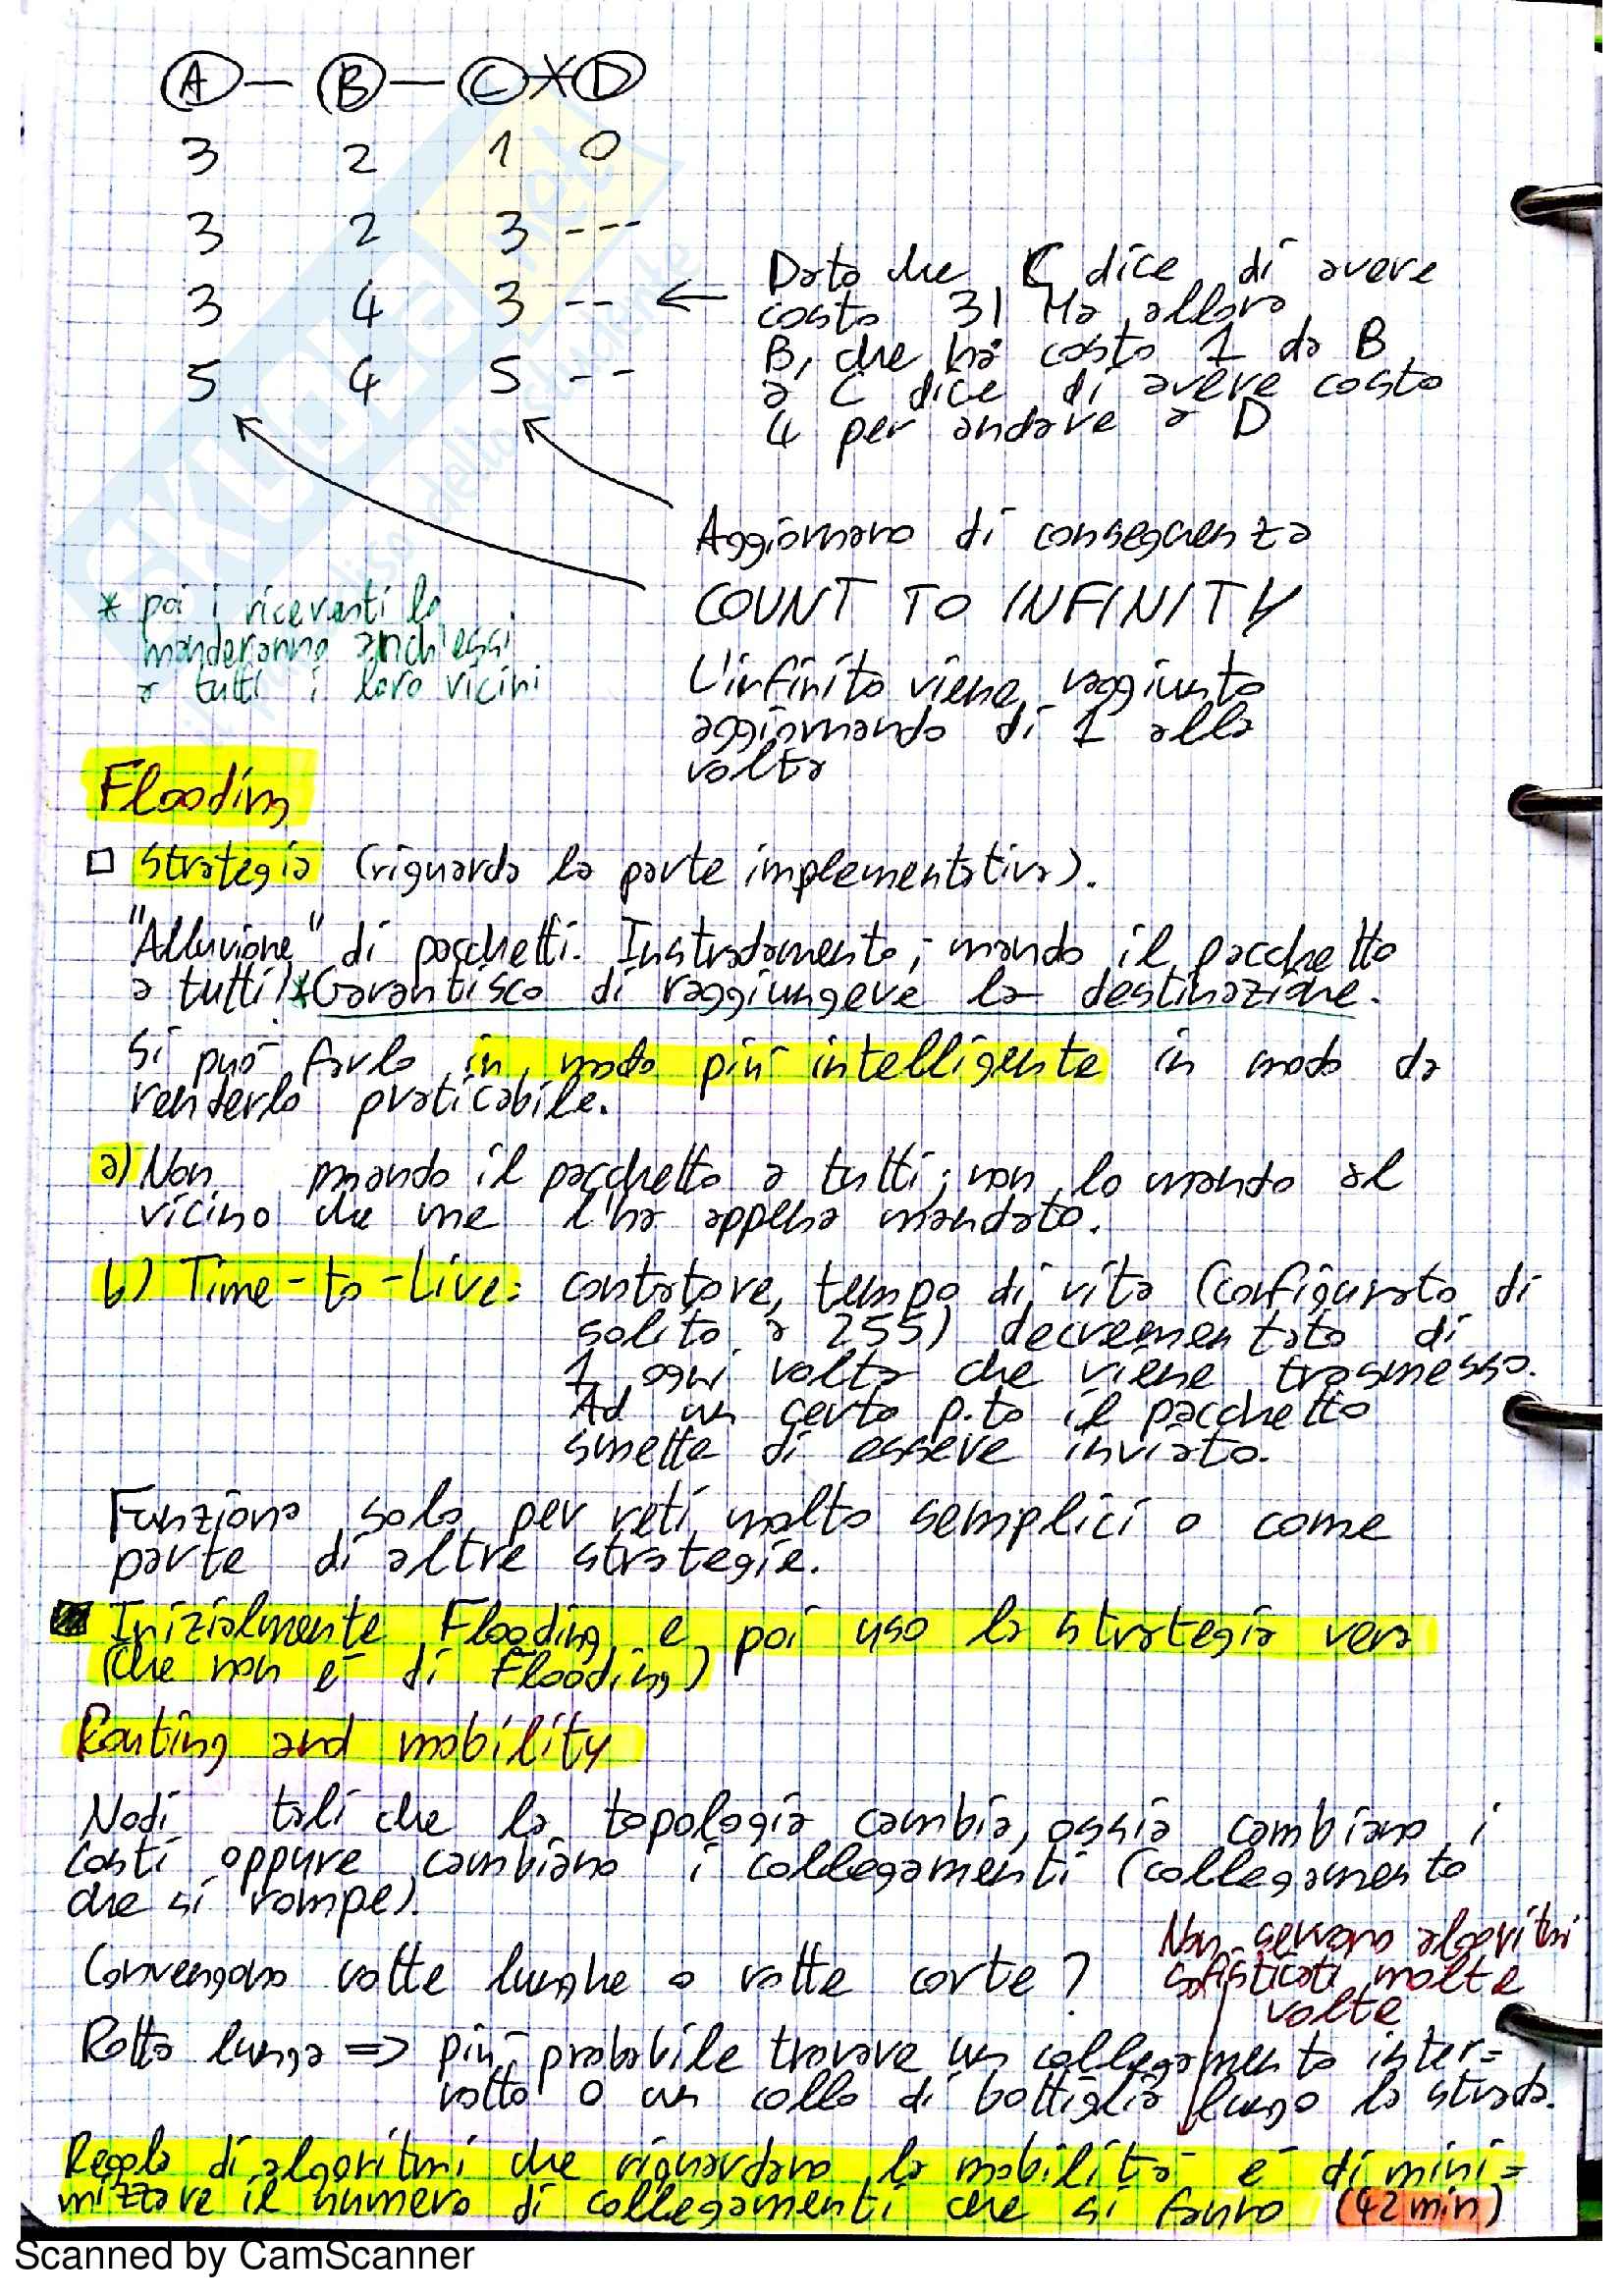 A — B — C X D
3 2 1 0
3 2 3 ---
3 4 3 --
5 4 5 --
Dato che C dice di avere
costo 3! Ma allora
B, che ha costo 1 da B
a C dice di avere costo
4 per andare a D
Aggiornano di conseguenza
COUNT TO INFINITY
L'infinito viene raggiunto
aggiornando di 1 alla
volta
* poi i riceventi lo
manderanno anch'essi
a tutti i loro vicini
Flooding
□ Strategia (riguarda la parte implementativa).
"Alluvione" di pacchetti. Instradamento; mando il pacchetto
a tutti!* Garantisco di raggiungere la destinazione.
Si può farlo in modo più intelligente in modo da
renderlo praticabile.
a) Non mando il pacchetto a tutti; non lo mando al
vicino che me l'ha appena mandato.
b) Time-to-Live: contatore, tempo di vita (configurato di
solito a 255) decrementato di
1 ogni volta che viene trasmesso.
Ad un certo p.to il pacchetto
smette di essere inviato.
Funziona solo per reti molto semplici o come
parte di altre strategie.
■ Inizialmente Flooding e poi uso la strategia vera
(che non è di Flooding)
Routing and mobility
Nodi tali che la topologia cambia, ossia cambiano i
costi oppure cambiano i collegamenti (collegamento
che si rompe).
Convengono rotte lunghe o rotte corte?
Non servono algoritmi
sofisticati molte
volte
Rotta lunga => più probabile trovare un collegamento inter=
rotto o un collo di bottiglia lungo la strada.
Regola di algoritmi che riguardano la mobilità è di mini=
mizzare il numero di collegamenti che si fanno (42 min)
SKUOLA.net
Scanned by CamScanner